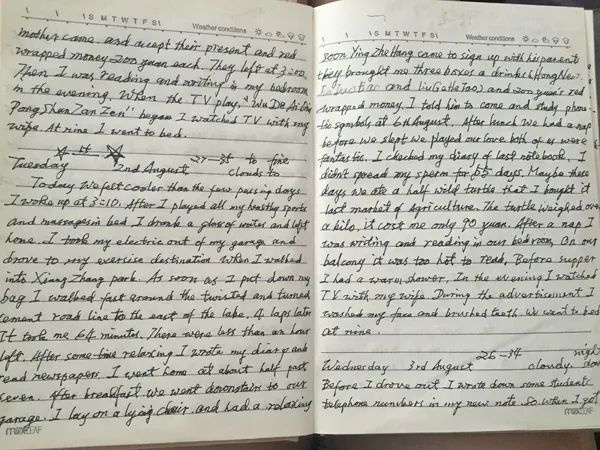 S M T W T F S Weather conditions
mother came and accept their present and red
wrapped money 200 yuan each. They left at 3=00.
Then I was reading and writing in my bedroom
in the evening. When the TV play, "Wo De Ai
began I watched TV with my
wife. At nine I went to bed.
27-35 to fine
Tuesday 2nd August clouds to
Today we felt cooler than the few passing days
I woke up at 3=10. After I played all my healthy sports
and massages in bed I drank a glass of water and left
home. I took my electric out of my garage and
drove to my exercise destination when I walked
into Xiang Zhang park. As soon as I put down my
bag I walked fast around the twisted and turned
cement road line to the east of the lake. 4 laps later
It took me 64 minutes. There were less than an hour
left. After some time relaxing I wrote my diary and
read newspapers. I went home at about half past
seven. After breakfast we went downstairs to our
garage. I lay on a lying chair and had a relaxing
MAXLEAF
S M T W T F S Weather conditions
soon Ying Zhe Hang came to sign up with his parents
they brought me three boxes a drinks (Hong Niu,
and Liu Ge He Tao) and 200 yuan's red
wrapped money. I told him to come and study phone-
tic symbols at 6th August. After lunch we had a nap
before we slept we played our love both of us were
fantastic. I checked my diary of last notebook. I
didn't spread my sperm for 65 days. Maybe these
days we ate a half wild turtle that I bought it
last market of Agriculture. The turtle weighed over
a kilo, it cost me only 90 yuan. After a nap I
was writing and reading in our bedroom. On our
balcony it was too hot to read. Before supper
I had a warm shower. In the evening I watched
TV with my wife. During the advertisement I
washed my face and brushed teeth. We went to bed
at nine.
26-34
Wednesday 3rd August cloudy,
Before I drove out I wrote down some students'
telephone numbers in my new note. So when I got
MAXLEAF